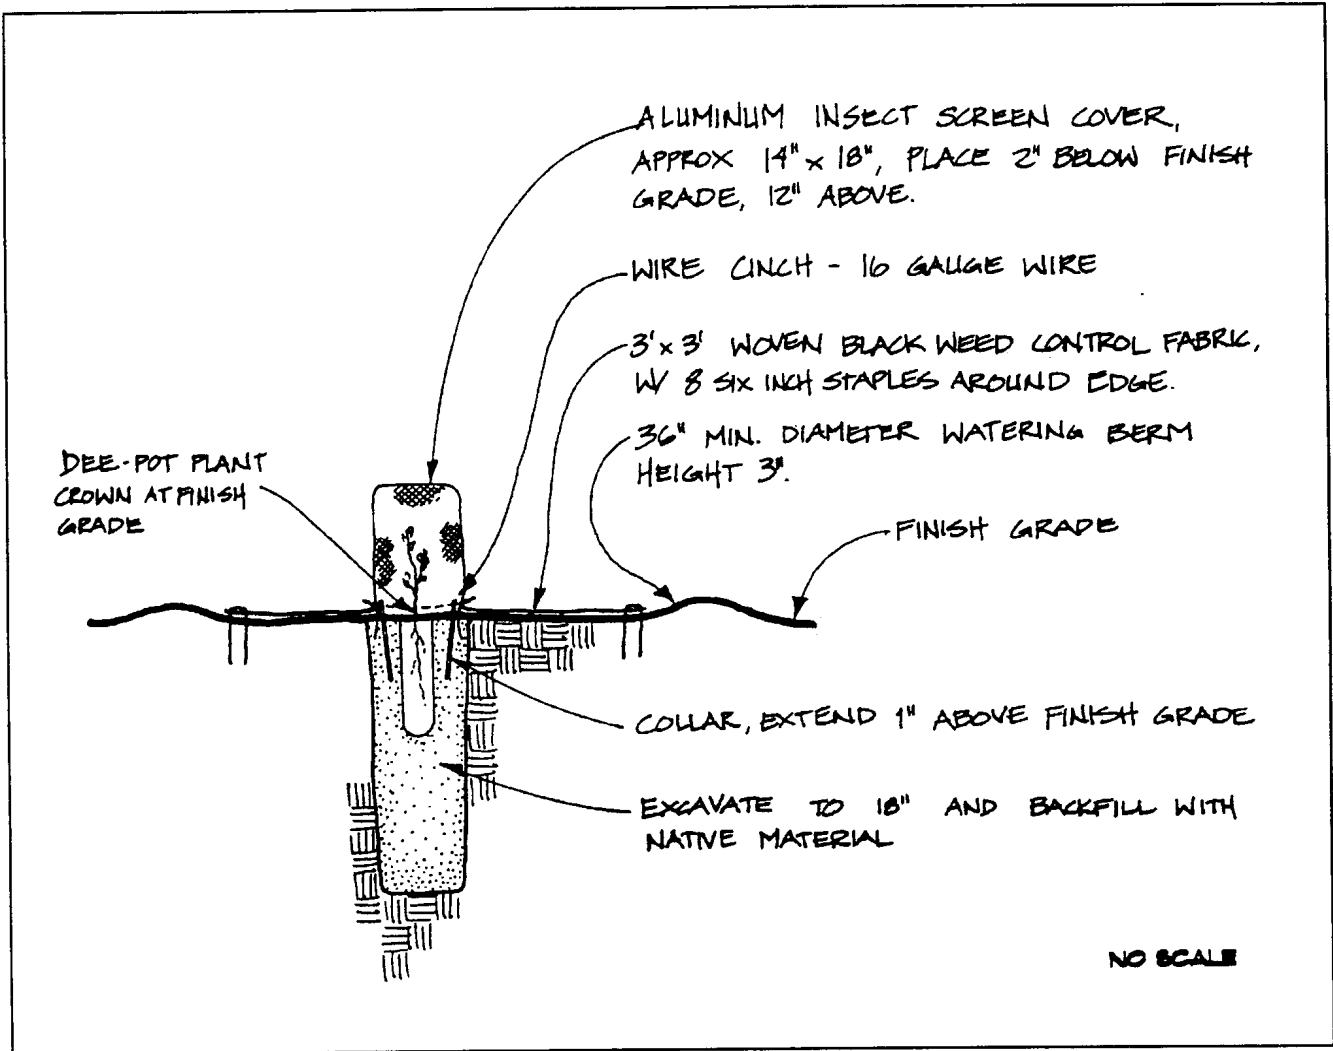 ALUMINUM INSECT SCREEN COVER,
APPROX 14" x 18", PLACE 2" BELOW FINISH
GRADE, 12" ABOVE.
WIRE CINCH - 16 GAUGE WIRE
3' x 3' WOVEN BLACK WEED CONTROL FABRIC,
W/ 8 SIX INCH STAPLES AROUND EDGE.
36" MIN. DIAMETER WATERING BERM
HEIGHT 3".
DEE-POT PLANT
CROWN AT FINISH
GRADE
FINISH GRADE
COLLAR, EXTEND 1" ABOVE FINISH GRADE
EXCAVATE TO 18" AND BACKFILL WITH
NATIVE MATERIAL
NO SCALE